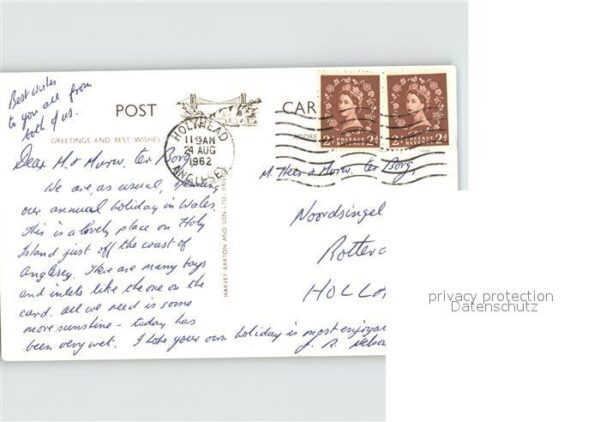 Best wishes
to you all from
both of us.
POST CAR
GREETINGS AND BEST WISHES
ADDRE
HOLYHEAD
11 45 AM
24 AUG
1962
ANGLESEY
POSTAGE REVENUE
2D 2D
POSTAGE REVENUE
2D 2D
Dear M. & Mevrw. ter Borg,
We are, as usual, spending
our annual holiday in Wales.
This is a lovely place on Holy
Island just off the coast of
Anglesey. There are many bays
and inlets like the one on the
card. All we need is some
more sunshine - today has
been very wet. I hope your own holiday is most enjoya
HARVEY BARTON AND SON LTD.
M. Heer & Mevrw. ter Borg,
Noordsingel
Rotter
HOLLA
privacy protection
Datenschutz